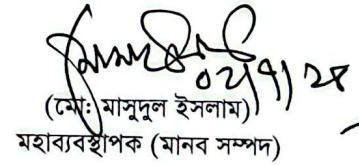 ০২/৭/২৪
(মোঃ মাসুদুল ইসলাম)
মহাব্যবস্থাপক (মানব সম্পদ)